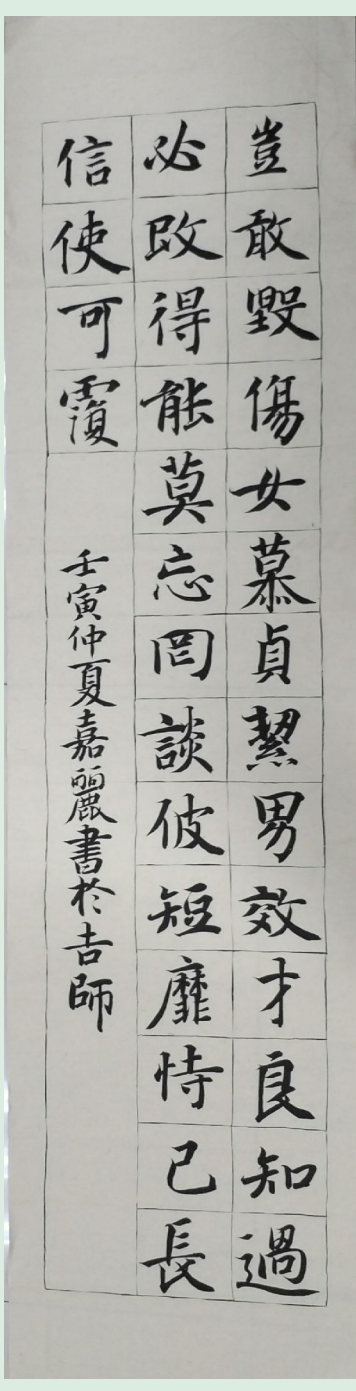 豈敢毀傷女慕貞絜男效才良知過
必改得能莫忘罔談彼短靡恃己長
信使可覆
壬寅仲夏嘉麗書於吉師